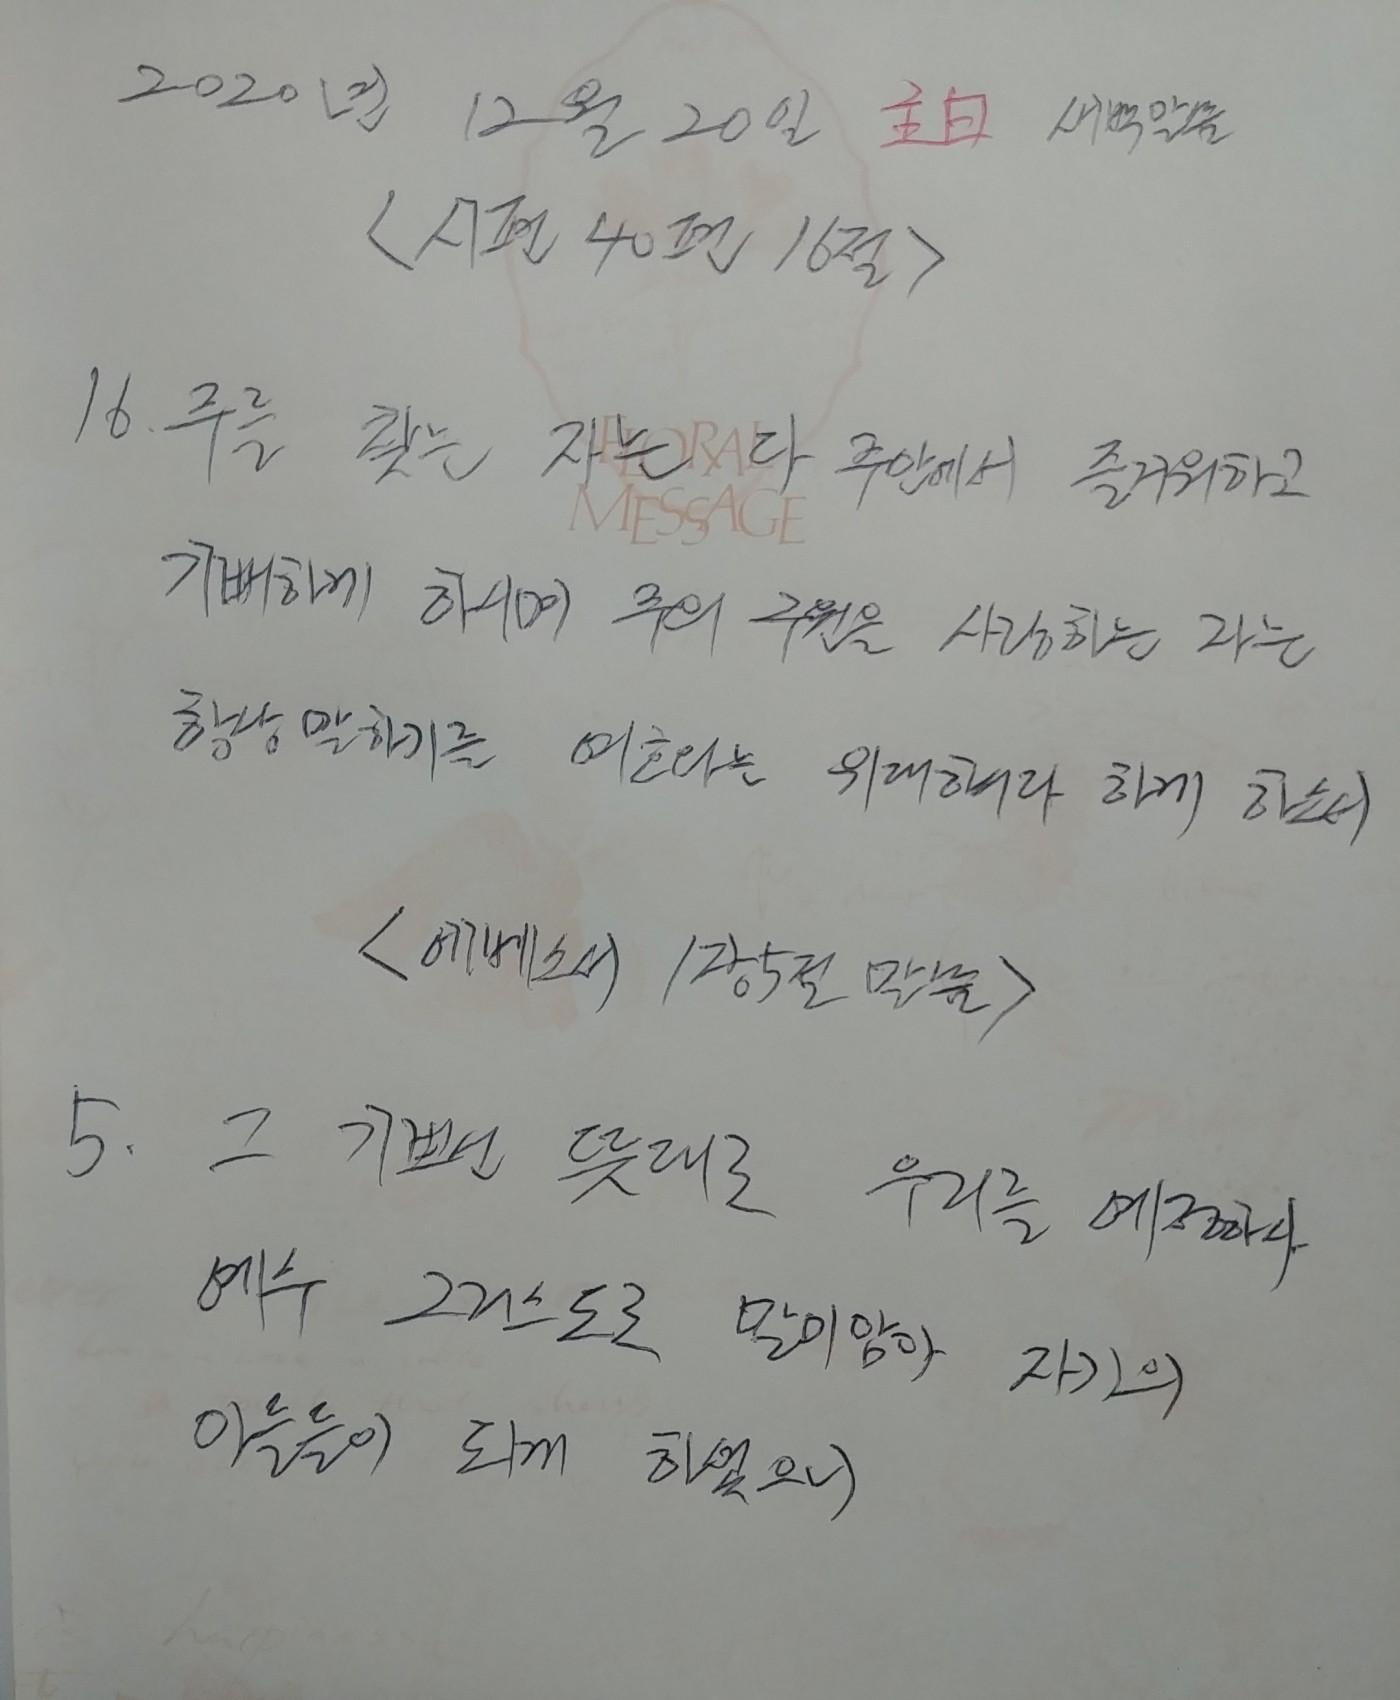 2020년 12월 20일 主日 새벽말씀
<시편 40편 16절>
16. 주를 찾는 자는 다 주안에서 즐거워하고
FLORAL
MESSAGE
기뻐하게 하시며 주의 구원을 사랑하는 자는
항상 말하기를 여호와는 위대하다 하게 하소서
<에베소서 1장 5절 말씀>
5. 그 기쁘신 뜻대로 우리를 예정하사
예수 그리스도로 말미암아 자기의
아들들이 되게 하셨으니